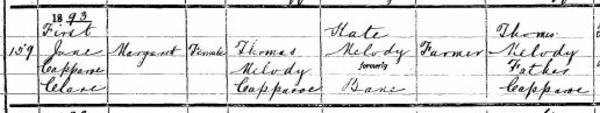 1893
First
159 June Margaret Female Thomas Kate Farmer Thomas
Capparoe Melody Melody Melody
Clare Capparoe formerly Father
Bane Capparoe